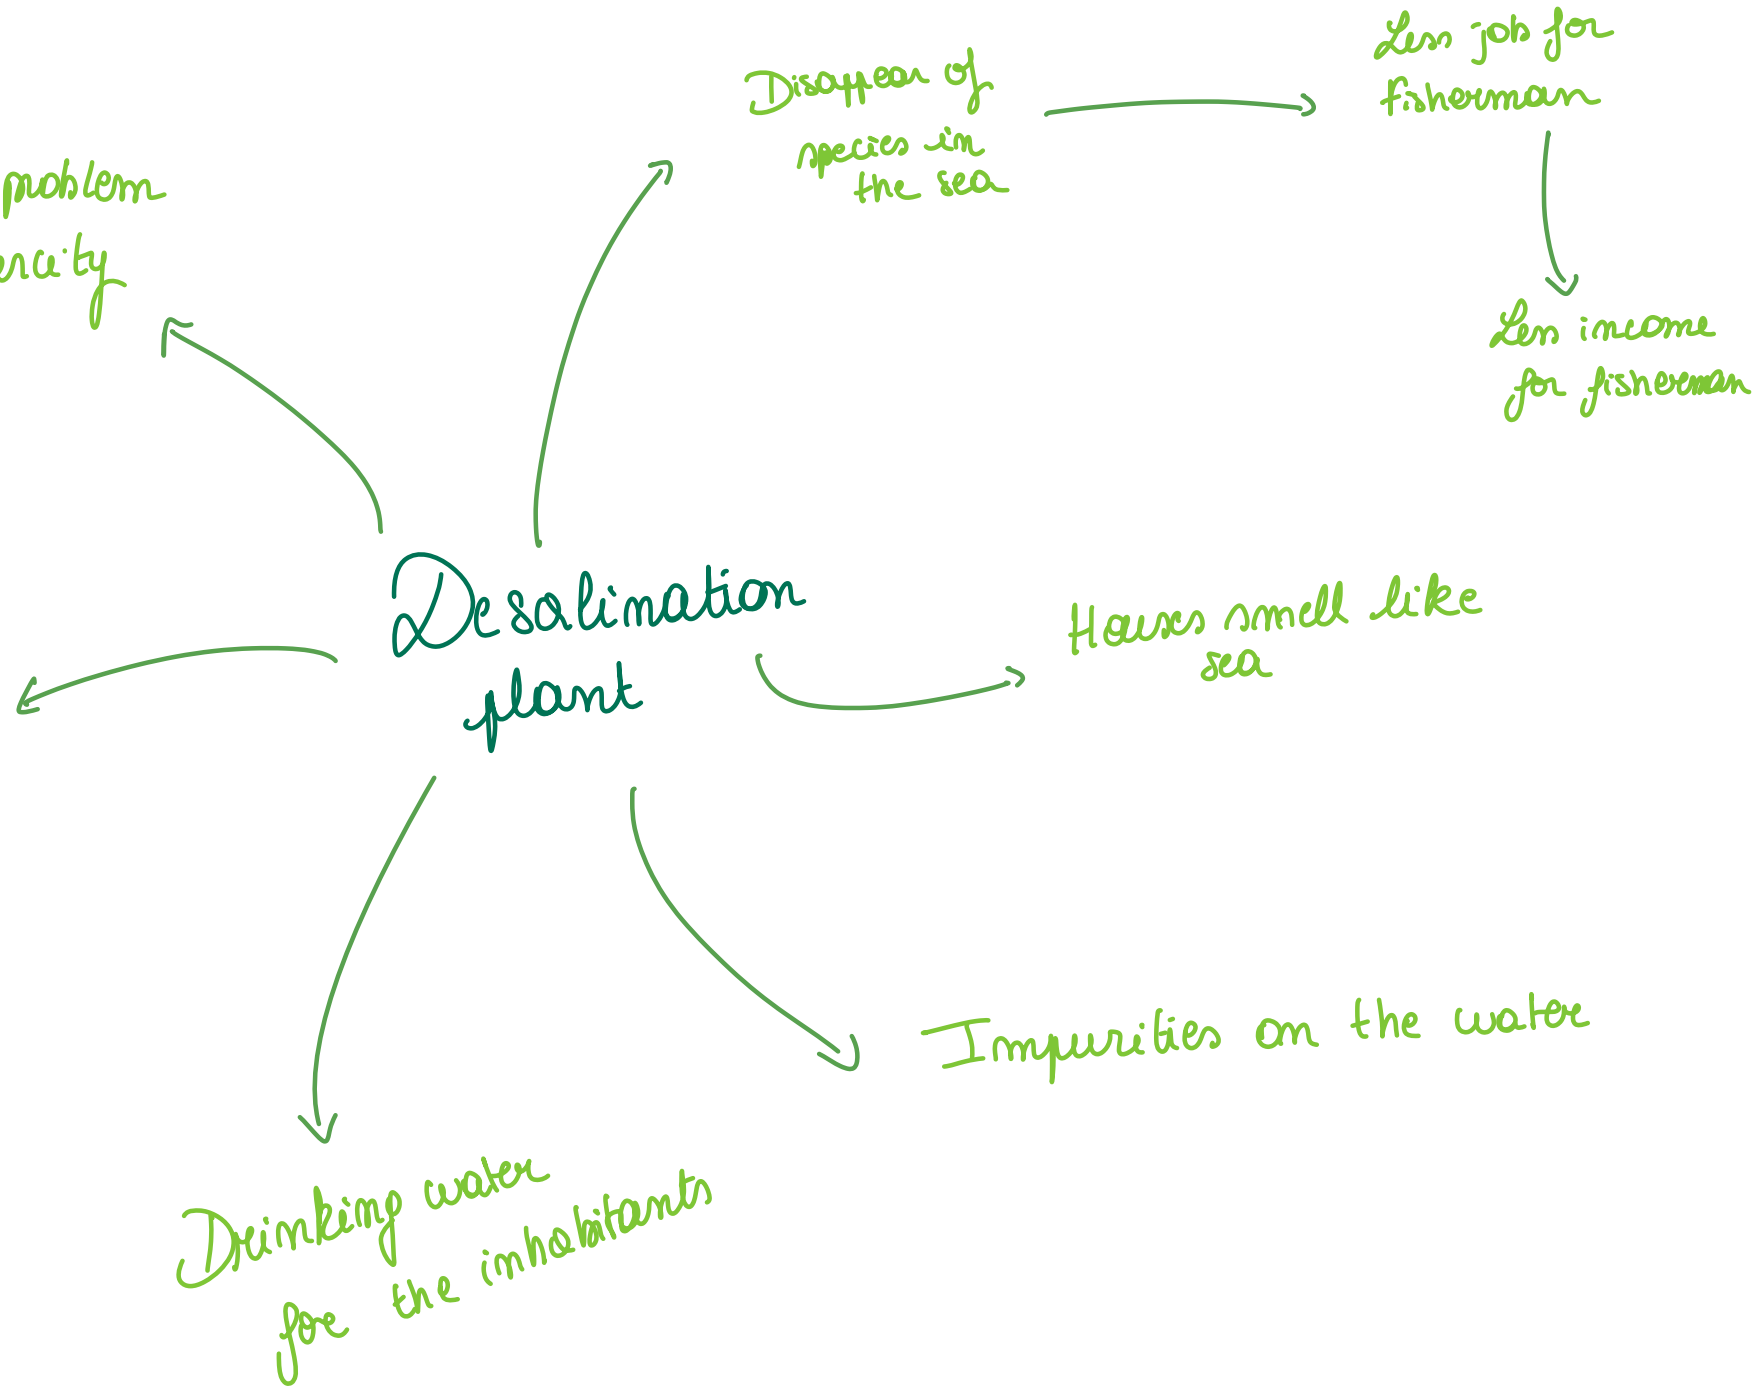 problem
ercity
Disappear of
species in
the sea
Less job for
fisherman
Less income
for fisherman
Desalination
plant
Houses smell like
sea
Impurities on the water
Drinking water
for the inhabitants